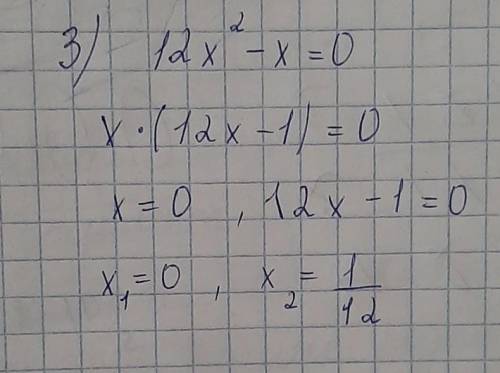 3) 12x² - x = 0
x · (12x - 1) = 0
x = 0 , 12x - 1 = 0
x₁ = 0 , x₂ = 1/12